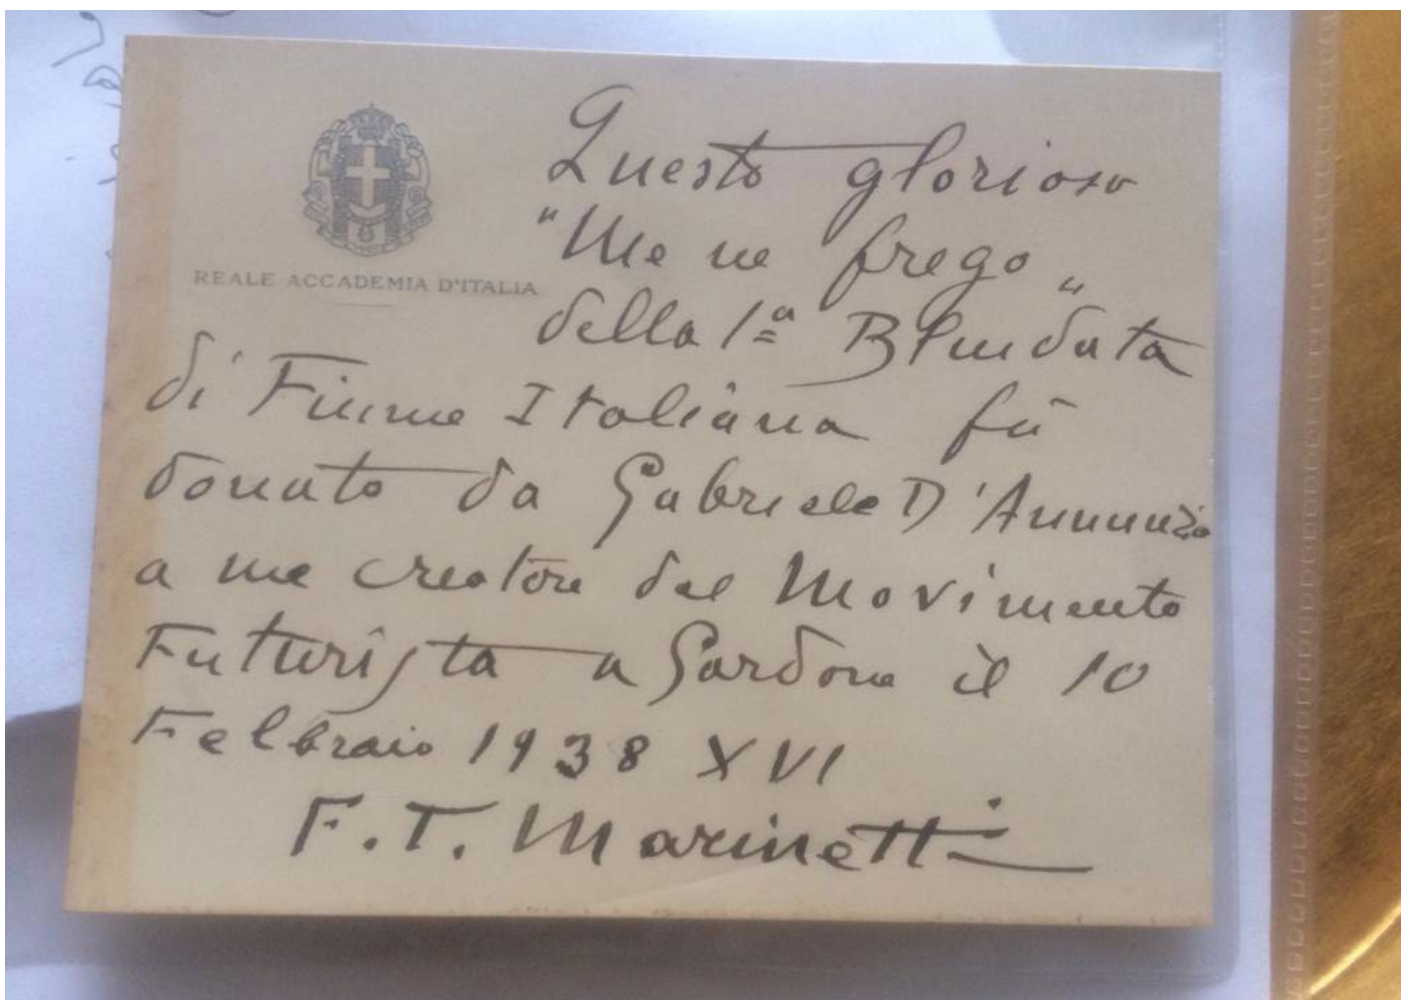 REALE ACCADEMIA D'ITALIA
Questo glorioso
"Me ne frego"
della 1ª Blindata
di Fiume Italiana fù
donato da Gabriele D'Annunzio
a me creatore del Movimento
Futurista a Gardone il 10
Febbraio 1938 XVI
F. T. Marinetti